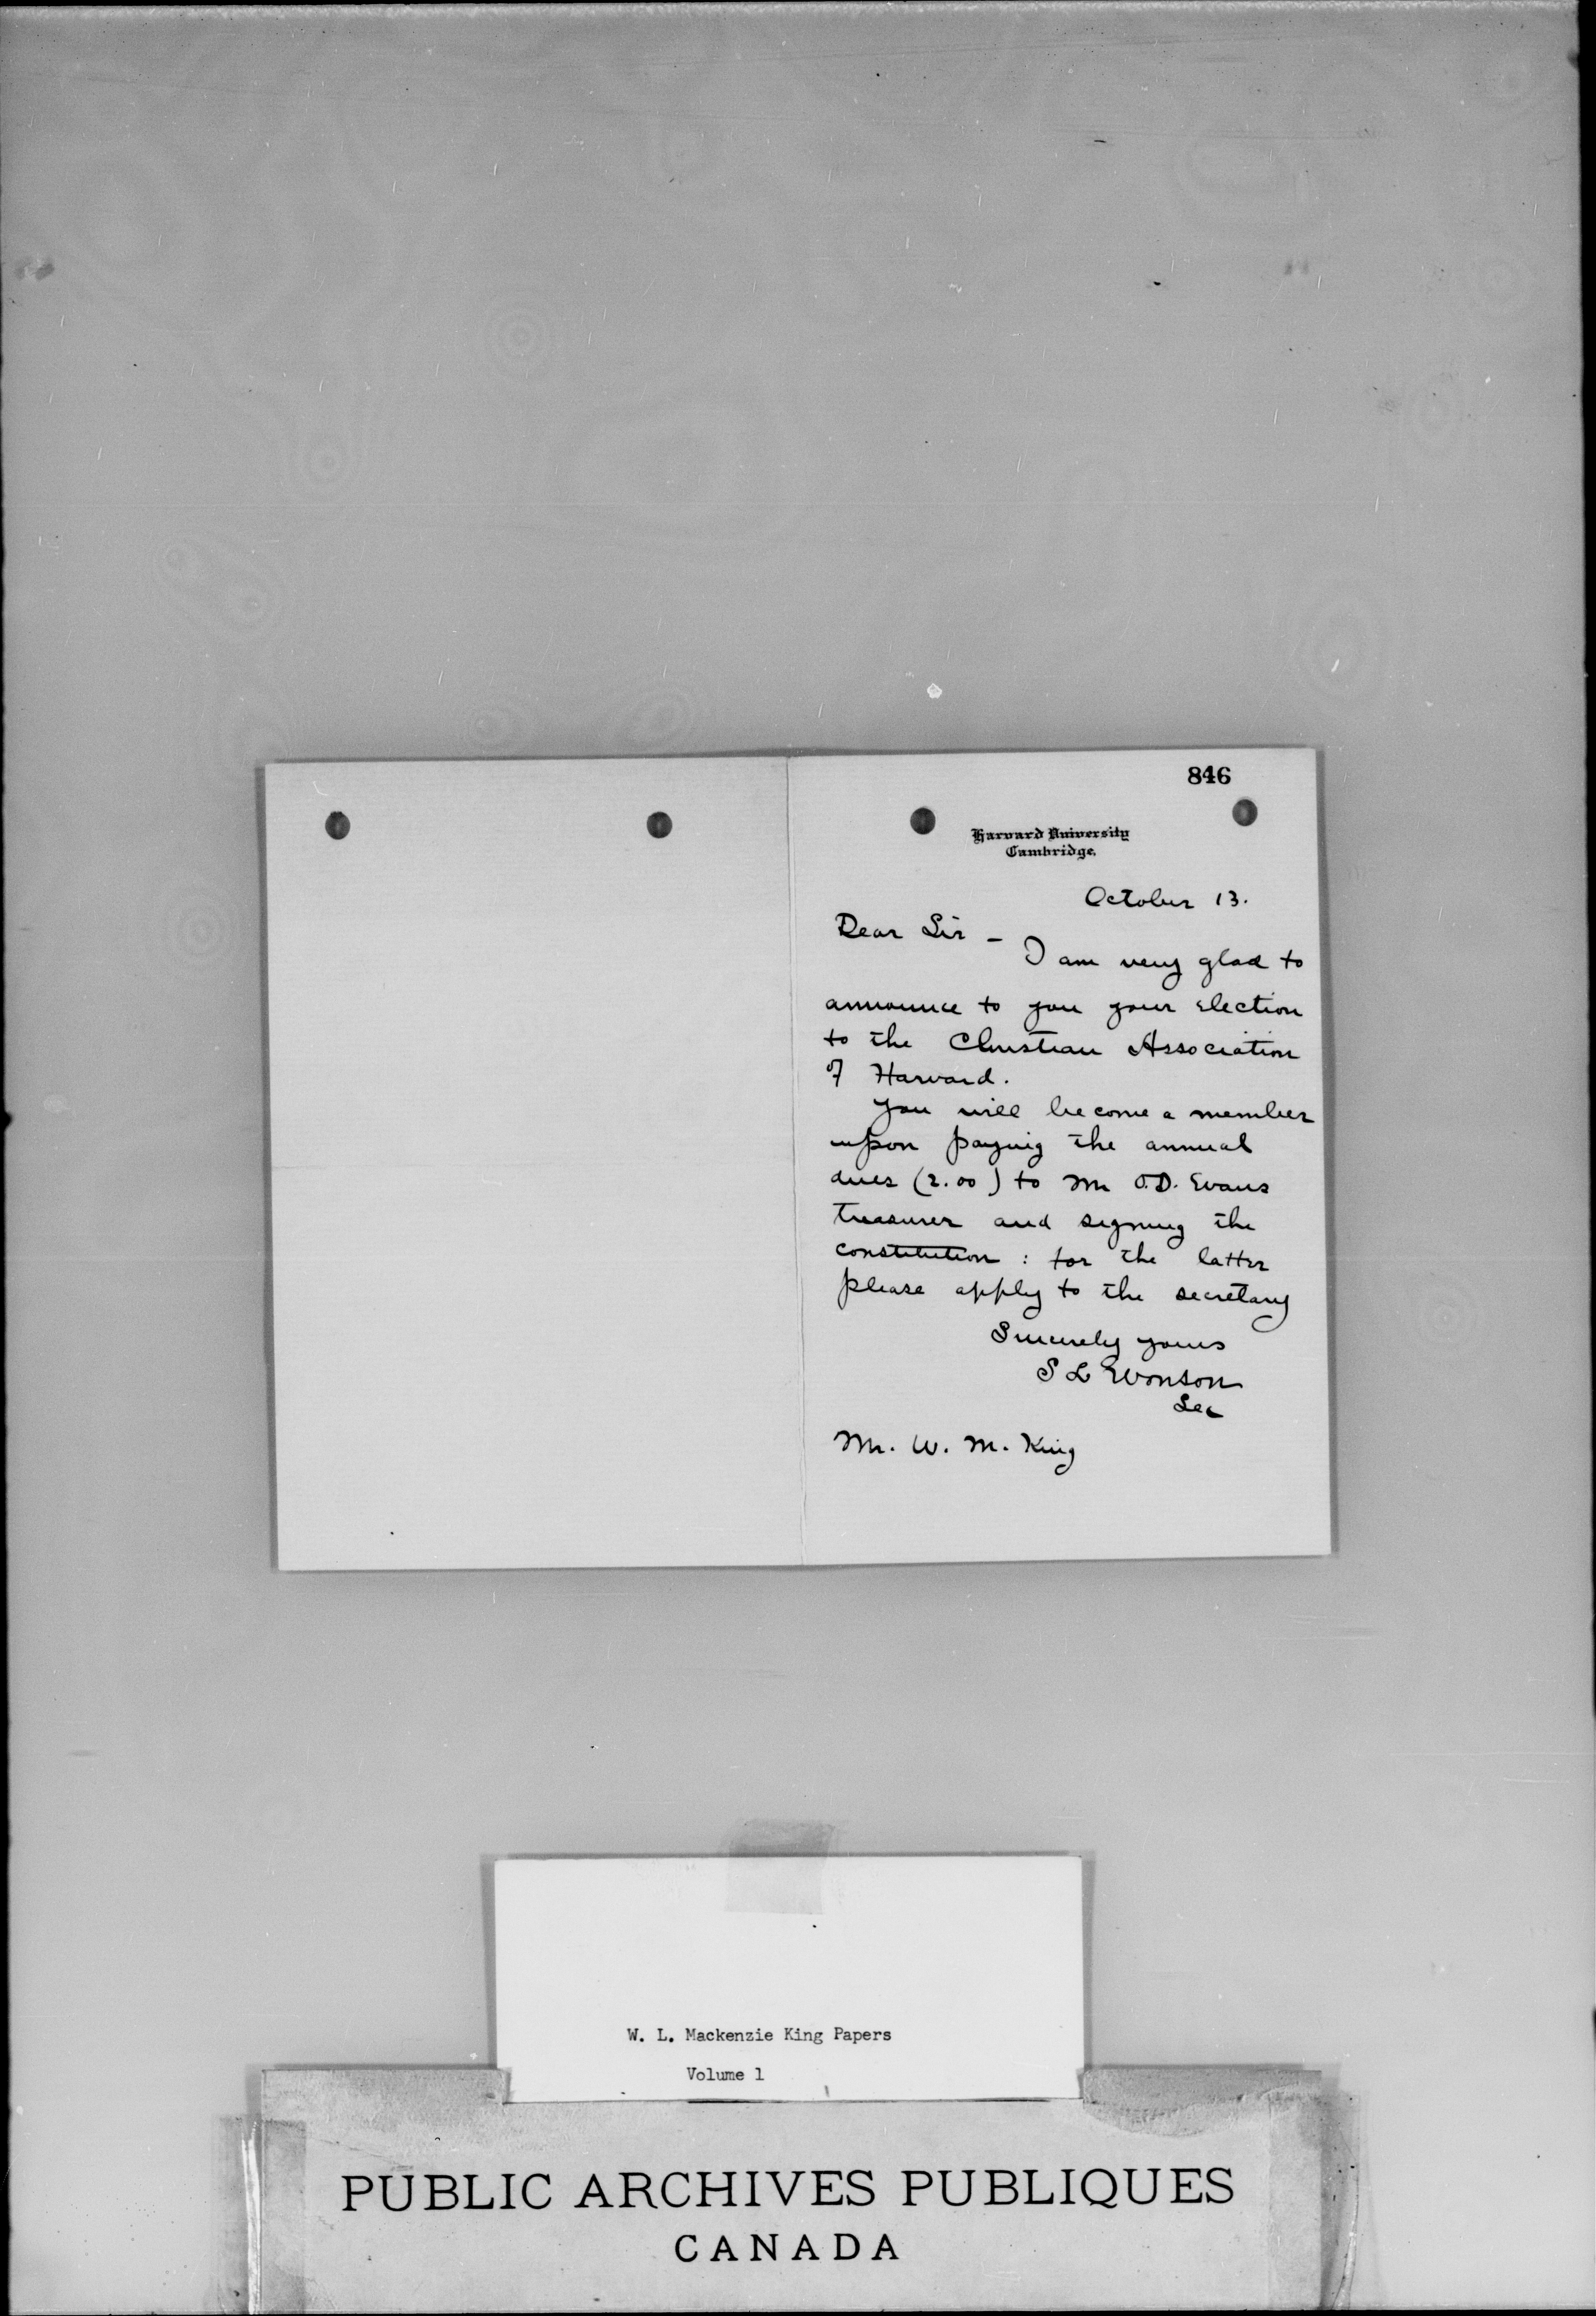 846
Harvard University
Cambridge.
October 13.
Dear Sir –
I am very glad to
announce to you your election
to the Christian Association
of Harvard.
You will become a member
upon paying the annual
dues (2.00) to Mr O.D. Evans
treasurer and signing the
constitution : for the latter
please apply to the secretary
Sincerely yours
S L Wonson
Sec
Mr. W. M. King
W. L. Mackenzie King Papers
Volume 1
PUBLIC ARCHIVES PUBLIQUES
CANADA